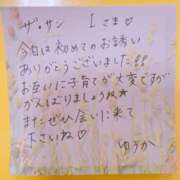 ザ・サン Iさま♡
今日は初めてのお誘い
ありがとうございました!!
お互いに子育てが大変ですが
がんばりましょうね★
またぜひ会いに来て
下さいね♡
ゆうか